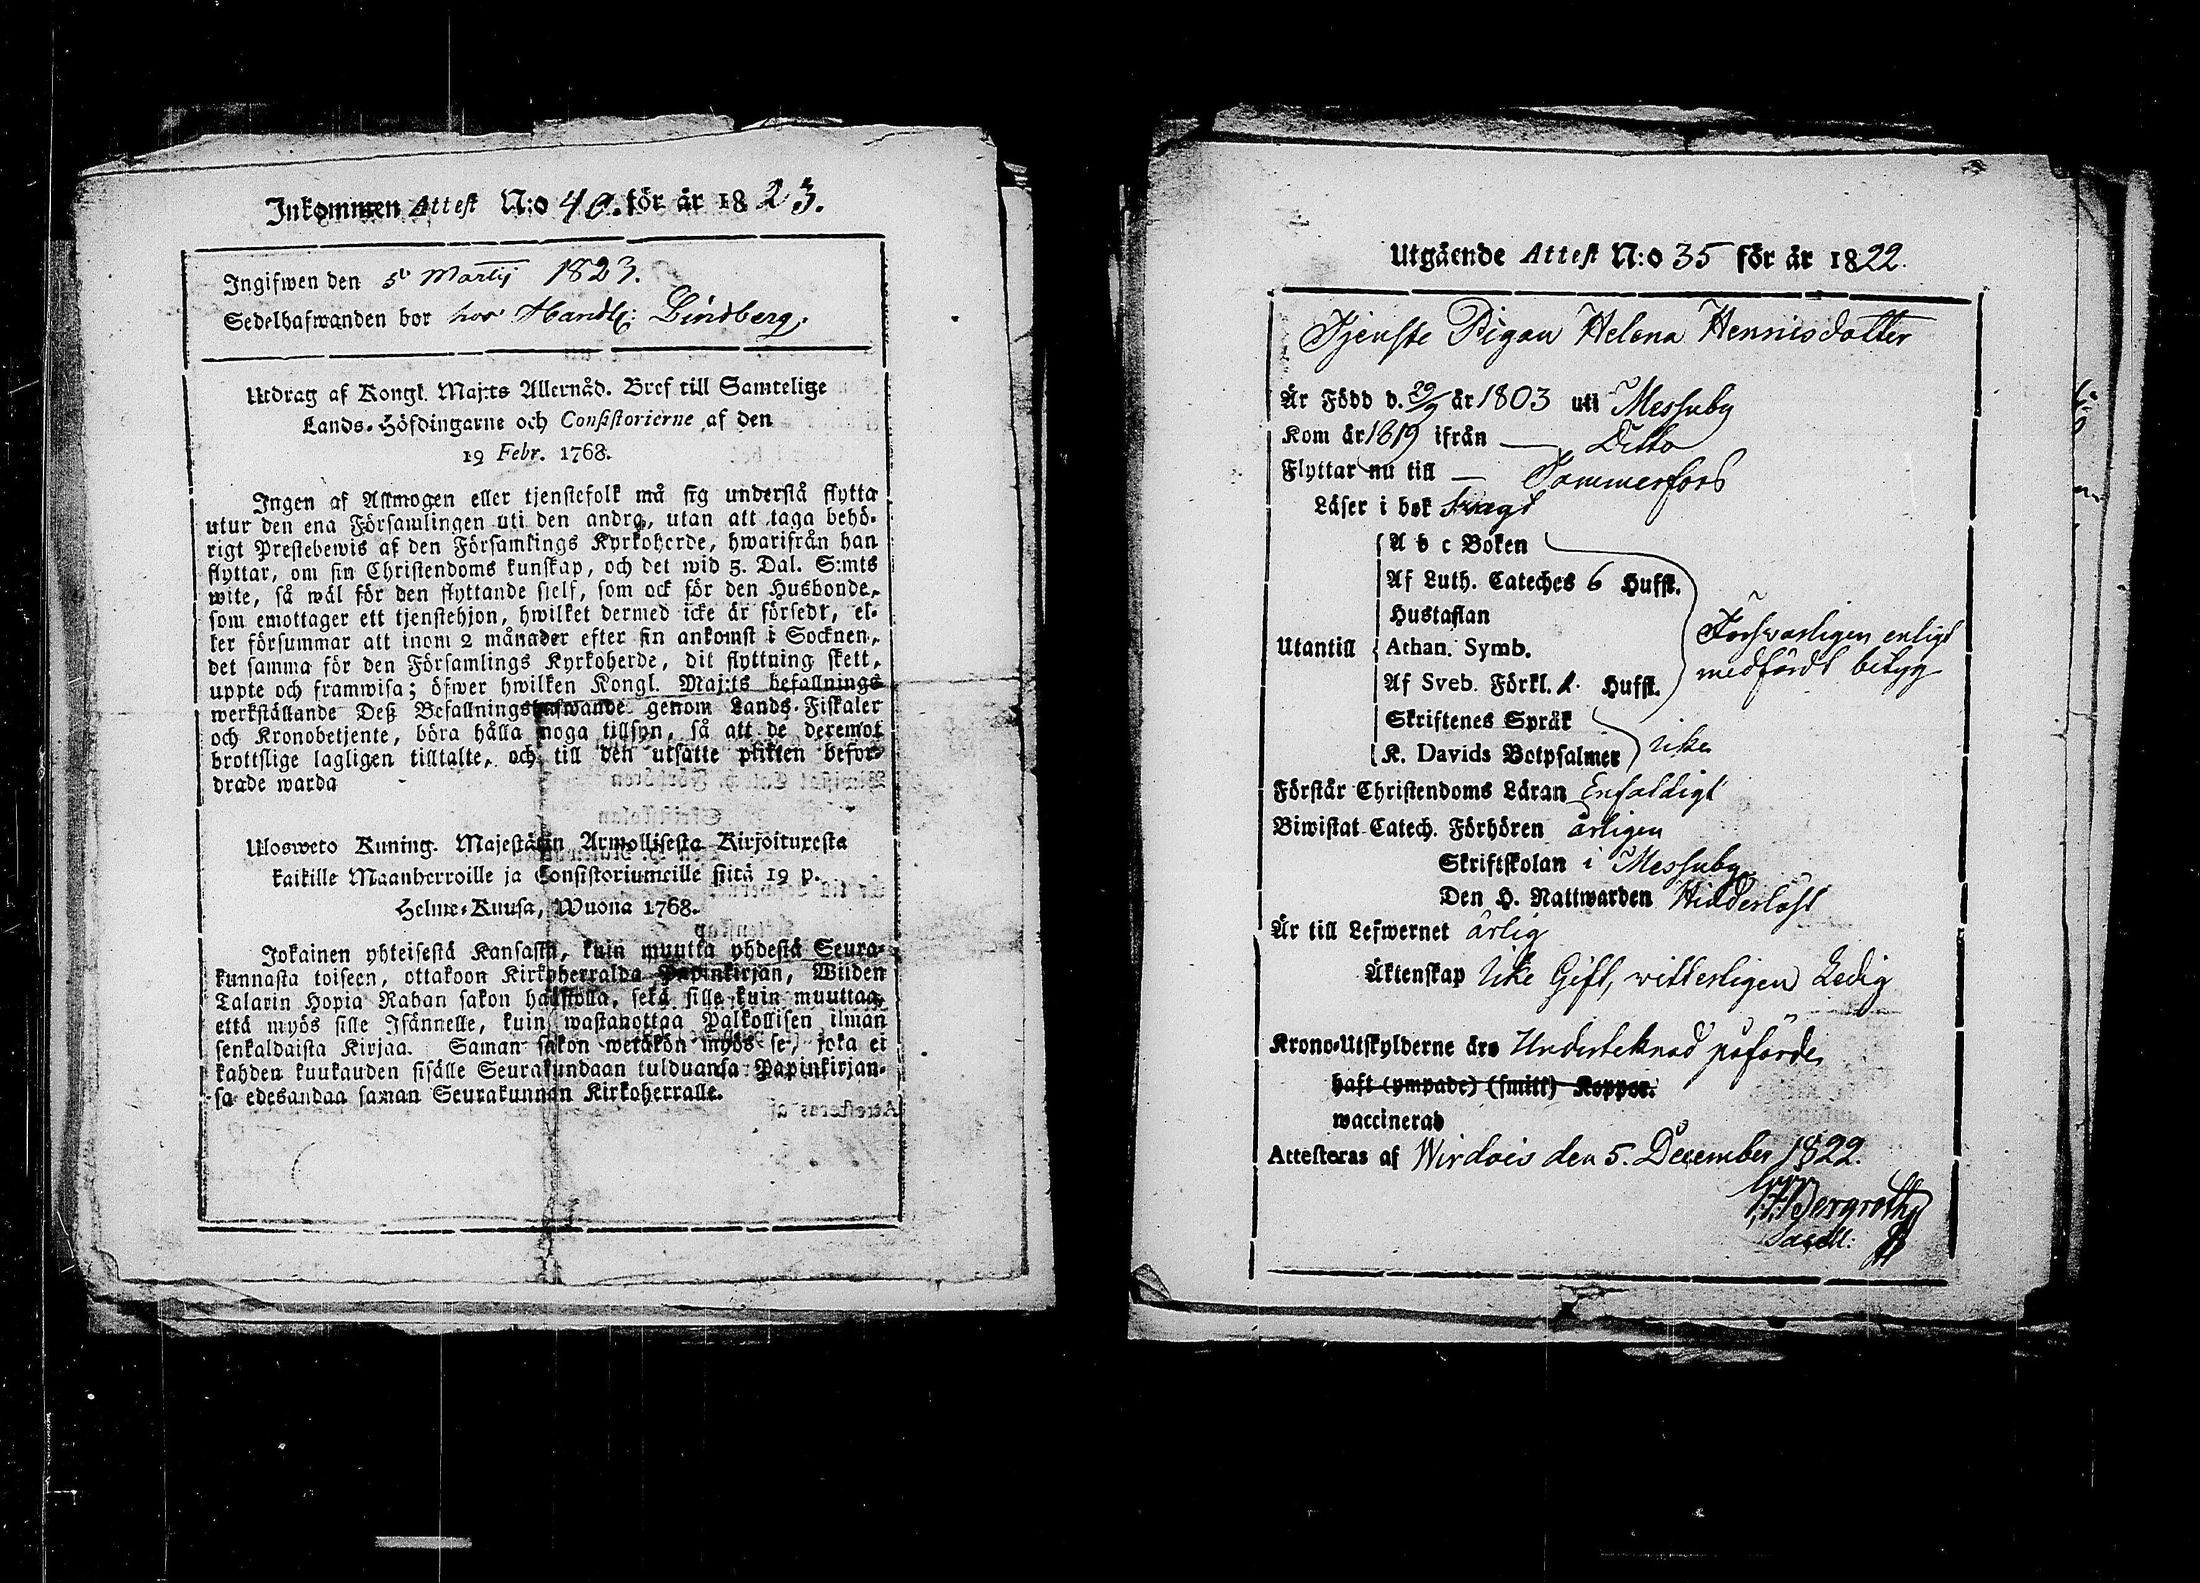 Inkommen Attest N:o 40. för år 1823.
Ingifwen den 5t Martij 1823.
Sedelhafwanden bor hos Handl: Lindberg.
Utdrag af Kongl. Maj:ts Allernåd. Bref till Samtelige
Lands-Höfdingarne och Consistorierne af den
19 Febr. 1768.
Ingen af Allmogen eller tjenstefolk må sig understå flytta
utur den ena Församlingen uti den andra, utan att taga behö-
rigt Prestebewis af den Församlings Kyrkoherde, hwarifrån han
flyttar, om sin Christendoms kunskap, och det wid 3. Dal. S:mts
wite, så wäl för den flyttande sjelf, som ock för den Husbonde,
som emottager ett tjenstehjon, hwilket dermed icke är försedt, el-
ler försummar att inom 2 månader efter sin ankomst i Socknen,
det samma för den Församlings Kyrkoherde, dit flyttning skett,
uppte och framwisa; öfwer hwilken Kongl. Maj:ts befallnings
werkställande Deß Befallningshafwande genom Lands-Fiskaler
och Kronobetjente, böra hålla noga tillsyn, så att de deremot
brottslige lagligen tilltalte, och till den utsatte plikten befor-
drade warda
Uloswето Kuning. Majestätin Armollisesta Kirjoituxesta
kaikille Maanherroille ja Consistoriumeille siitä 19 p.
Helme-Kuusa, Wuona 1768.
Jokainen yhteisestä Kansasta, kuin muutta yhdestä Seura-
kunnasta toiseen, ottakoon Kirkoherralda Papinkirjan, Wiiden
Talarin Hopia Rahan sakon haastolla, sekä sille kuin muuttaa,
että myös sille Isännelle, kuin wastanottaa Palkollisen ilman
senkaldaista Kirjaa. Saman sakon wetäkön myös se, joka ei
kahden kuukauden sisälle Seurakundaan tulduansa Papinkirjan-
sa edesandaa saman Seurakunnan Kirkoherralle.
Utgående Attest N:o 35 för år 1822.
Tjenste Pigan Helena Hennisdotter
Är Född d. 29/9 år 1803 uti Messuby
Kom år 1819 ifrån — Ditto
Flyttar nu till — Tammerfors
Läser i bok svagt
A b c Boken
Af Luth. Cateches 6 Hufst.
Hustaflan
Utantill Athan. Symb.
Försvarligen enligt
medfördt betyg
Af Sveb. Förkl. 1. Hufst.
Skriftenes Språk
K. Davids Botpsalmer icke
Förstår Christendoms Läran Enfaldigt
Biwistat Catech. Förhören årligen
Skriftskolan i Messuby
Den H. Nattwarden Hinderlöst
Är till Lefwernet ärlig
Äktenskap icke Gift, vitterligen Ledig
Krono-Utskylderne äro Undertecknad påförde
haft (ympade) (smitt) Koppor.
waccinerad
Attesteras af Wirdois den 5. December 1822.
Bergroth
Sacell: